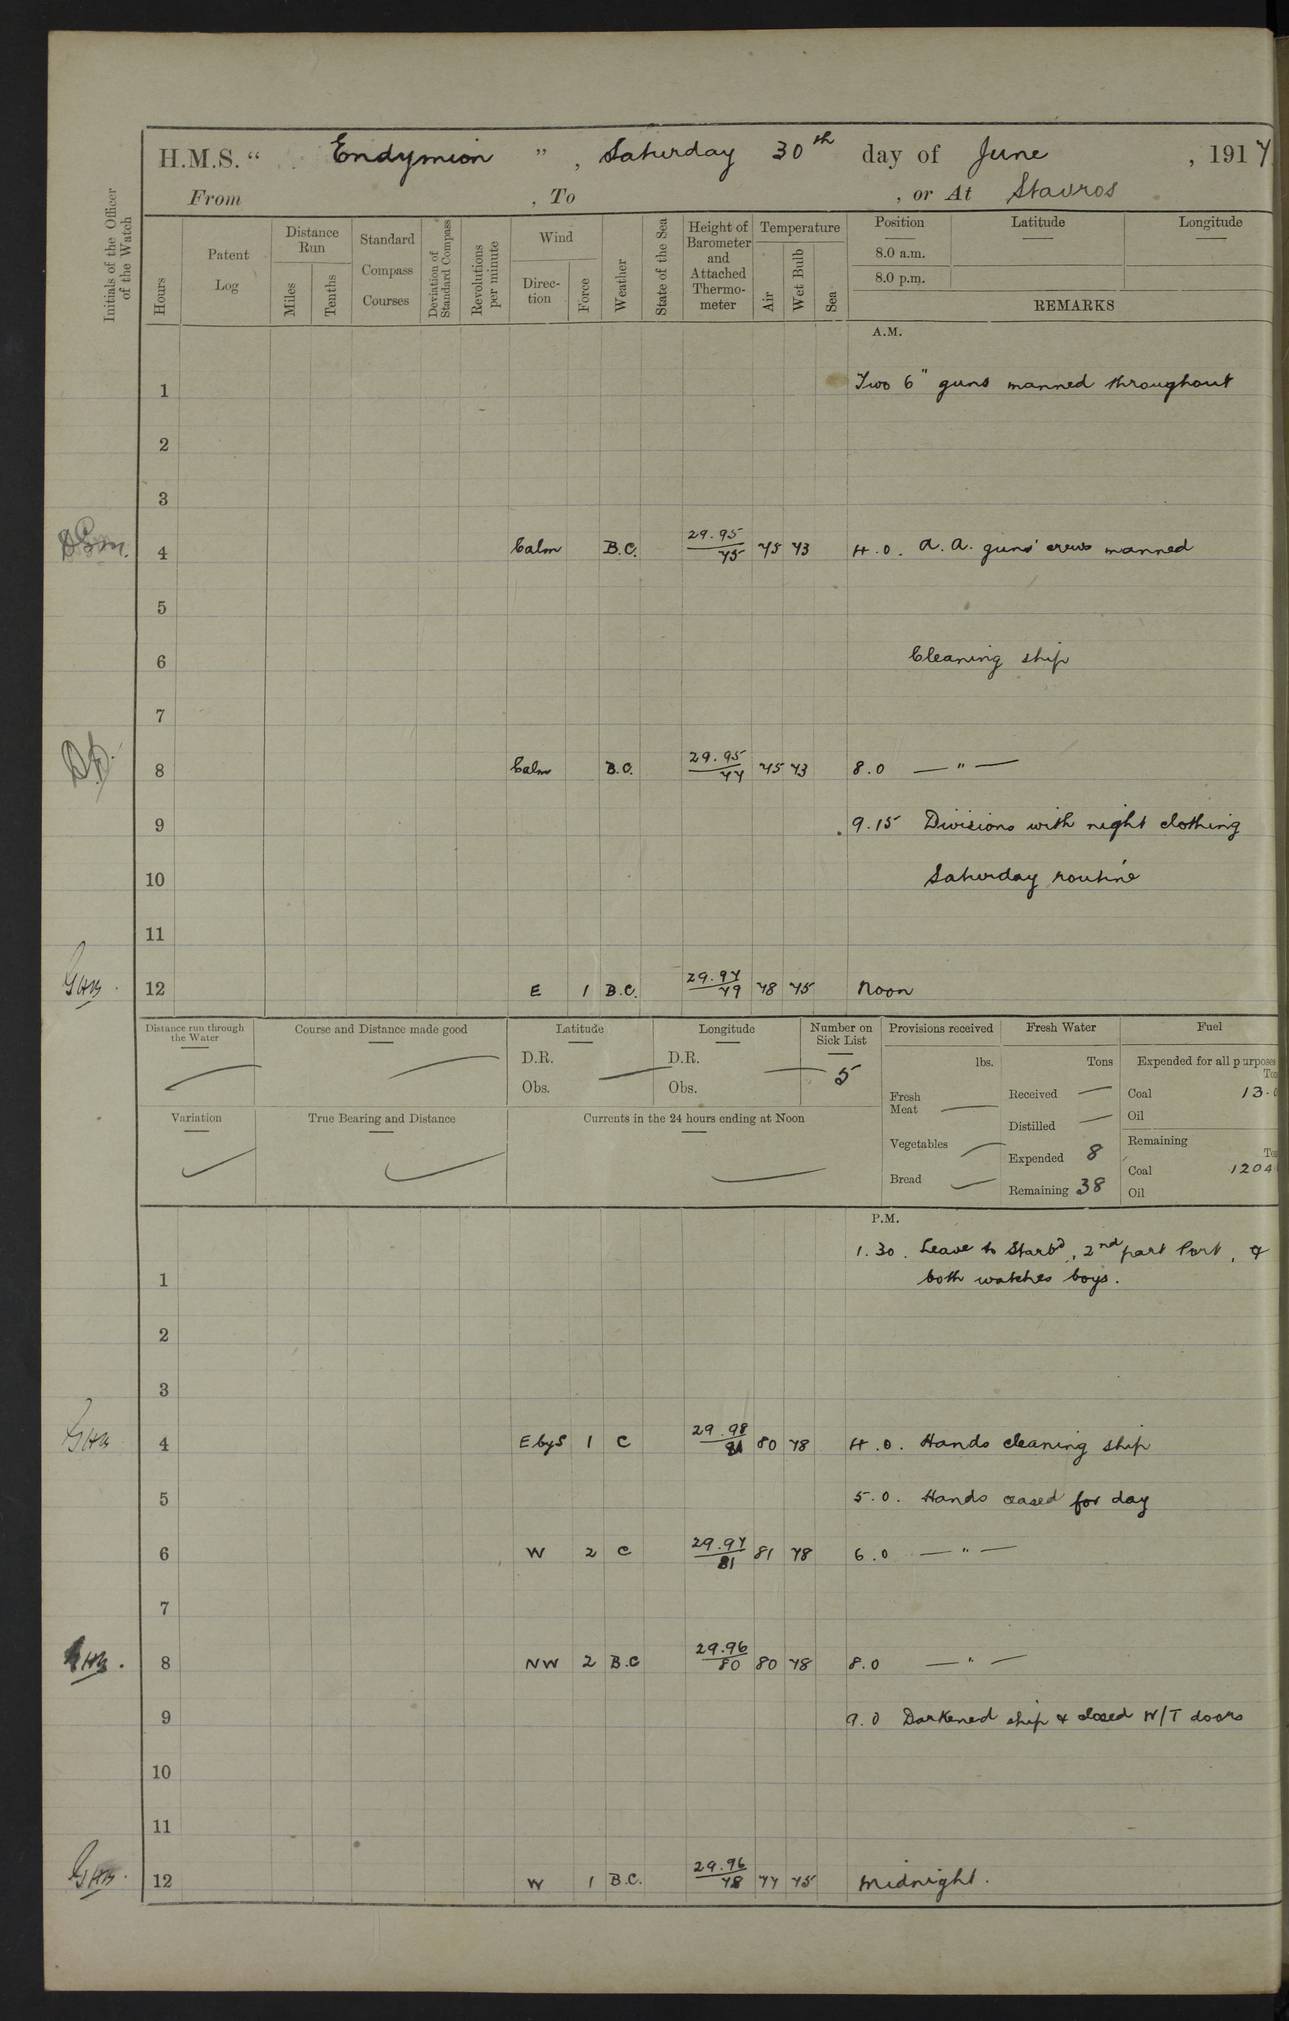 H.M.S. " Endymion ", Saturday 30th day of June, 1917
From , To , or At Stavros
Initials of the Officer of the Watch
Hours
Patent Log
Distance Run
Miles
Tenths
Standard Compass Courses
Deviation of Standard Compass
Revolutions per minute
Wind
Direction
Force
Weather
State of the Sea
Height of Barometer and Attached Thermometer
Temperature
Air
Wet Bulb
Sea
Position Latitude Longitude
8.0 a.m.
8.0 p.m.
REMARKS
A.M.
1 Two 6" guns manned throughout
2
3
4 Calm B.C. 29.95/75 75 73 4.0. A.A. guns' crews manned
5
6 Cleaning ship
7
8 Calm B.C. 29.95/77 75 73 8.0 — " —
9 9.15 Divisions with night clothing
10 Saturday routine
11
12 E 1 B.C. 29.97/79 78 75 Noon
Distance run through the Water
Course and Distance made good
Latitude
D.R.
Obs.
Longitude
D.R.
Obs.
Number on Sick List
5
Provisions received
lbs.
Fresh Meat —
Vegetables —
Bread —
Fresh Water
Tons
Received —
Distilled —
Expended 8
Remaining 38
Fuel
Expended for all purposes
Coal 13.
Oil
Remaining
Coal 1204
Oil
Variation
True Bearing and Distance
Currents in the 24 hours ending at Noon
P.M.
1.30. Leave to Starbd, 2nd part Port, &
1 both watches boys.
2
3
4 E by S 1 C 29.98/81 80 78 4.0. Hands cleaning ship
5 5.0. Hands ceased for day
6 W 2 C 29.97/81 81 78 6.0 — " —
7
8 NW 2 B.C 29.96/80 80 78 8.0 — " —
9 9.0 Darkened ship & closed W/T doors
10
11
12 W 1 B.C. 29.96/78 77 75 Midnight.